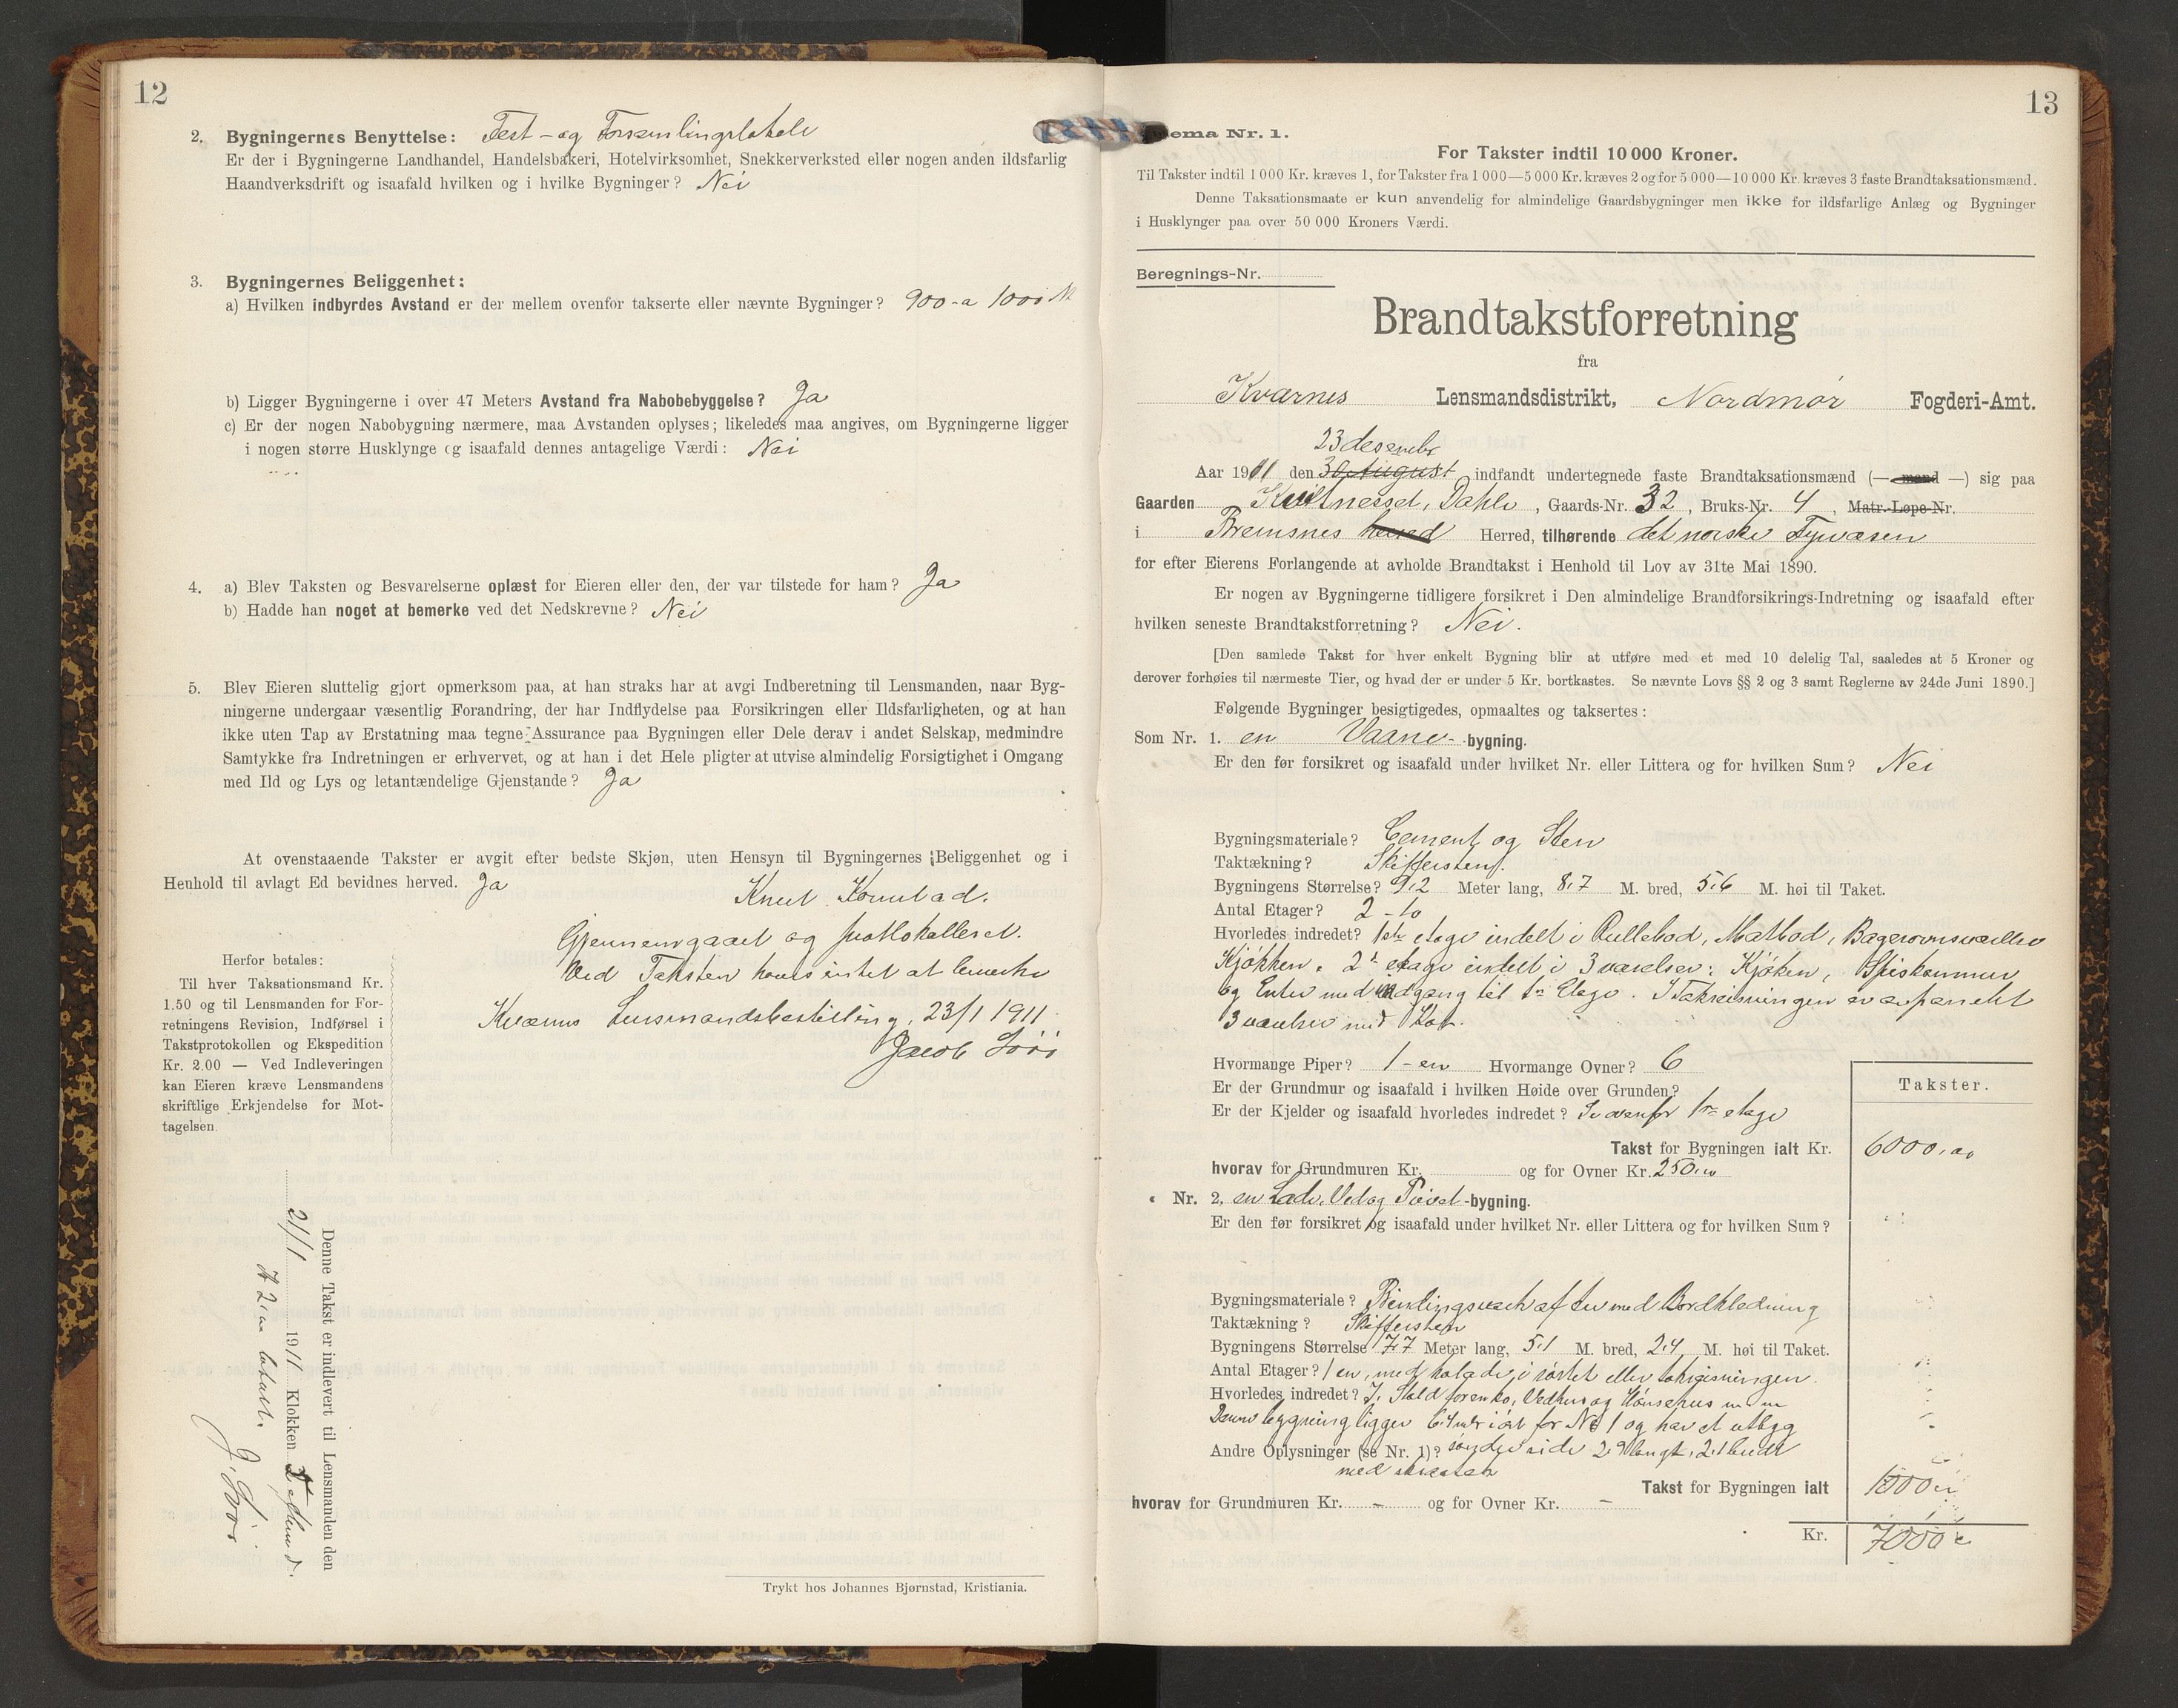 12
2. Bygningernes Benyttelse: Fest- og Forsamlingslokale
Er der i Bygningerne Landhandel, Handelsbakeri, Hotelvirksomhet, Snekkerverksted eller nogen anden ildsfarlig
Haandverksdrift og isaafald hvilken og i hvilke Bygninger? Nei
3. Bygningernes Beliggenhet:
a) Hvilken indbyrdes Avstand er der mellem ovenfor takserte eller nævnte Bygninger? 900 a 1000 M
b) Ligger Bygningerne i over 47 Meters Avstand fra Nabobebyggelse? Ja
c) Er der nogen Nabobygning nærmere, maa Avstanden oplyses; likeledes maa angives, om Bygningerne ligger
i nogen større Husklynge og isaafald dennes antagelige Værdi: Nei
4. a) Blev Taksten og Besvarelserne oplæst for Eieren eller den, der var tilstede for ham? Ja
b) Hadde han noget at bemerke ved det Nedskrevne? Nei
5. Blev Eieren sluttelig gjort opmerksom paa, at han straks har at avgi Indberetning til Lensmanden, naar Byg-
ningerne undergaar væsentlig Forandring, der har Indflydelse paa Forsikringen eller Ildsfarligheten, og at han
ikke uten Tap av Erstatning maa tegne Assurance paa Bygningen eller Dele derav i andet Selskap, medmindre
Samtykke fra Indretningen er erhvervet, og at han i det Hele pligter at utvise almindelig Forsigtighet i Omgang
med Ild og Lys og letantændelige Gjenstande? Ja
At ovenstaaende Takster er avgit efter bedste Skjøn, uten Hensyn til Bygningernes Beliggenhet og i
Henhold til avlagt Ed bevidnes herved. Ja
Knut
Gjennemgaaet og protokolleret.
Ved Taksten haves intet at bemerke
Kværnes Lensmandsbestilling, 23/1 1911
Jacob
Herfor betales:
Til hver Taksationsmand Kr.
1.50 og til Lensmanden for For-
retningens Revision, Indførsel i
Takstprotokollen og Ekspedition
Kr. 2.00 — Ved Indleveringen
kan Eieren kræve Lensmandens
skriftlige Erkjendelse for Mot-
tagelsen.
Denne Takst er indlevert til Lensmanden den
21/1 1911 Klokken
betalt.
Trykt hos Johannes Bjørnstad, Kristiania.
13
ema Nr. 1.
For Takster indtil 10 000 Kroner.
Til Takster indtil 1 000 Kr. kræves 1, for Takster fra 1 000—5 000 Kr. kræves 2 og for 5 000—10 000 Kr. kræves 3 faste Brandtaksationsmænd.
Denne Taksationsmaate er kun anvendelig for almindelige Gaardsbygninger men ikke for ildsfarlige Anlæg og Bygninger
i Husklynger paa over 50 000 Kroners Værdi.
Beregnings-Nr.
Brandtakstforretning
fra
Kværnes Lensmandsdistrikt, Nordmør Fogderi-Amt.
23 desember
Aar 1911 den 30 August indfandt undertegnede faste Brandtaksationsmænd (— mand —) sig paa
Gaarden Kvitnesset, Dahle, Gaards-Nr. 32, Bruks-Nr. 4, Matr.-Løpe-Nr.
i Bremsnes herred Herred, tilhørende det norske Fyrvæsen
for efter Eierens Forlangende at avholde Brandtakst i Henhold til Lov av 31te Mai 1890.
Er nogen av Bygningerne tidligere forsikret i Den almindelige Brandforsikrings-Indretning og isaafald efter
hvilken seneste Brandtakstforretning? Nei.
[Den samlede Takst for hver enkelt Bygning blir at utføre med et med 10 delelig Tal, saaledes at 5 Kroner og
derover forhøies til nærmeste Tier, og hvad der er under 5 Kr. bortkastes. Se nævnte Lovs §§ 2 og 3 samt Reglerne av 24de Juni 1890.]
Følgende Bygninger besigtigedes, opmaaltes og taksertes:
Som Nr. 1. en Vaane-bygning.
Er den før forsikret og isaafald under hvilket Nr. eller Littera og for hvilken Sum? Nei
Bygningsmateriale? Cement og Sten
Taktækning? Skiffersten.
Bygningens Størrelse? 9.2 Meter lang, 8.7 M. bred, 5.6 M. høi til Taket.
Antal Etager? 2 - to
Hvorledes indredet? 1ste etage indelt i Rullebod, Matbod, Bagerovnsværelse
Kjøkken. 2n etage indelt i 3 værelser: Kjøken, Spiskammer
og Entre med indgang til 1n Etage. I Takreisningen er avpanelet
3 værelser med
Hvormange Piper? 1 - en Hvormange Ovner? 6
Er der Grundmur og isaafald i hvilken Høide over Grunden?
Er der Kjelder og isaafald hvorledes indredet? Se ovenfor 1ste etage
Takster.
Takst for Bygningen ialt Kr. 6000.00
hvorav for Grundmuren Kr. og for Ovner Kr. 250.00
Nr. 2, en Lade, Ved og Privet-bygning.
Er den før forsikret og isaafald under hvilket Nr. eller Littera og for hvilken Sum?
Bygningsmateriale? Bindingsverk af træ med Bordklædning
Taktækning? Skiffersten
Bygningens Størrelse 7.7 Meter lang, 5.1 M. bred, 2.4 M. høi til Taket.
Antal Etager? 1 en, med eller takreisningen.
Hvorledes indredet? Stald for en ko, Vedhus og Hønsehus m m
Denne bygning ligger for No 1 og har et utbyg
Andre Oplysninger (se Nr. 1)? søndre side 2.9 langt, 2.1 bredt
med
Takst for Bygningen ialt 1000
hvorav for Grundmuren Kr. - og for Ovner Kr. -
Kr. 7000